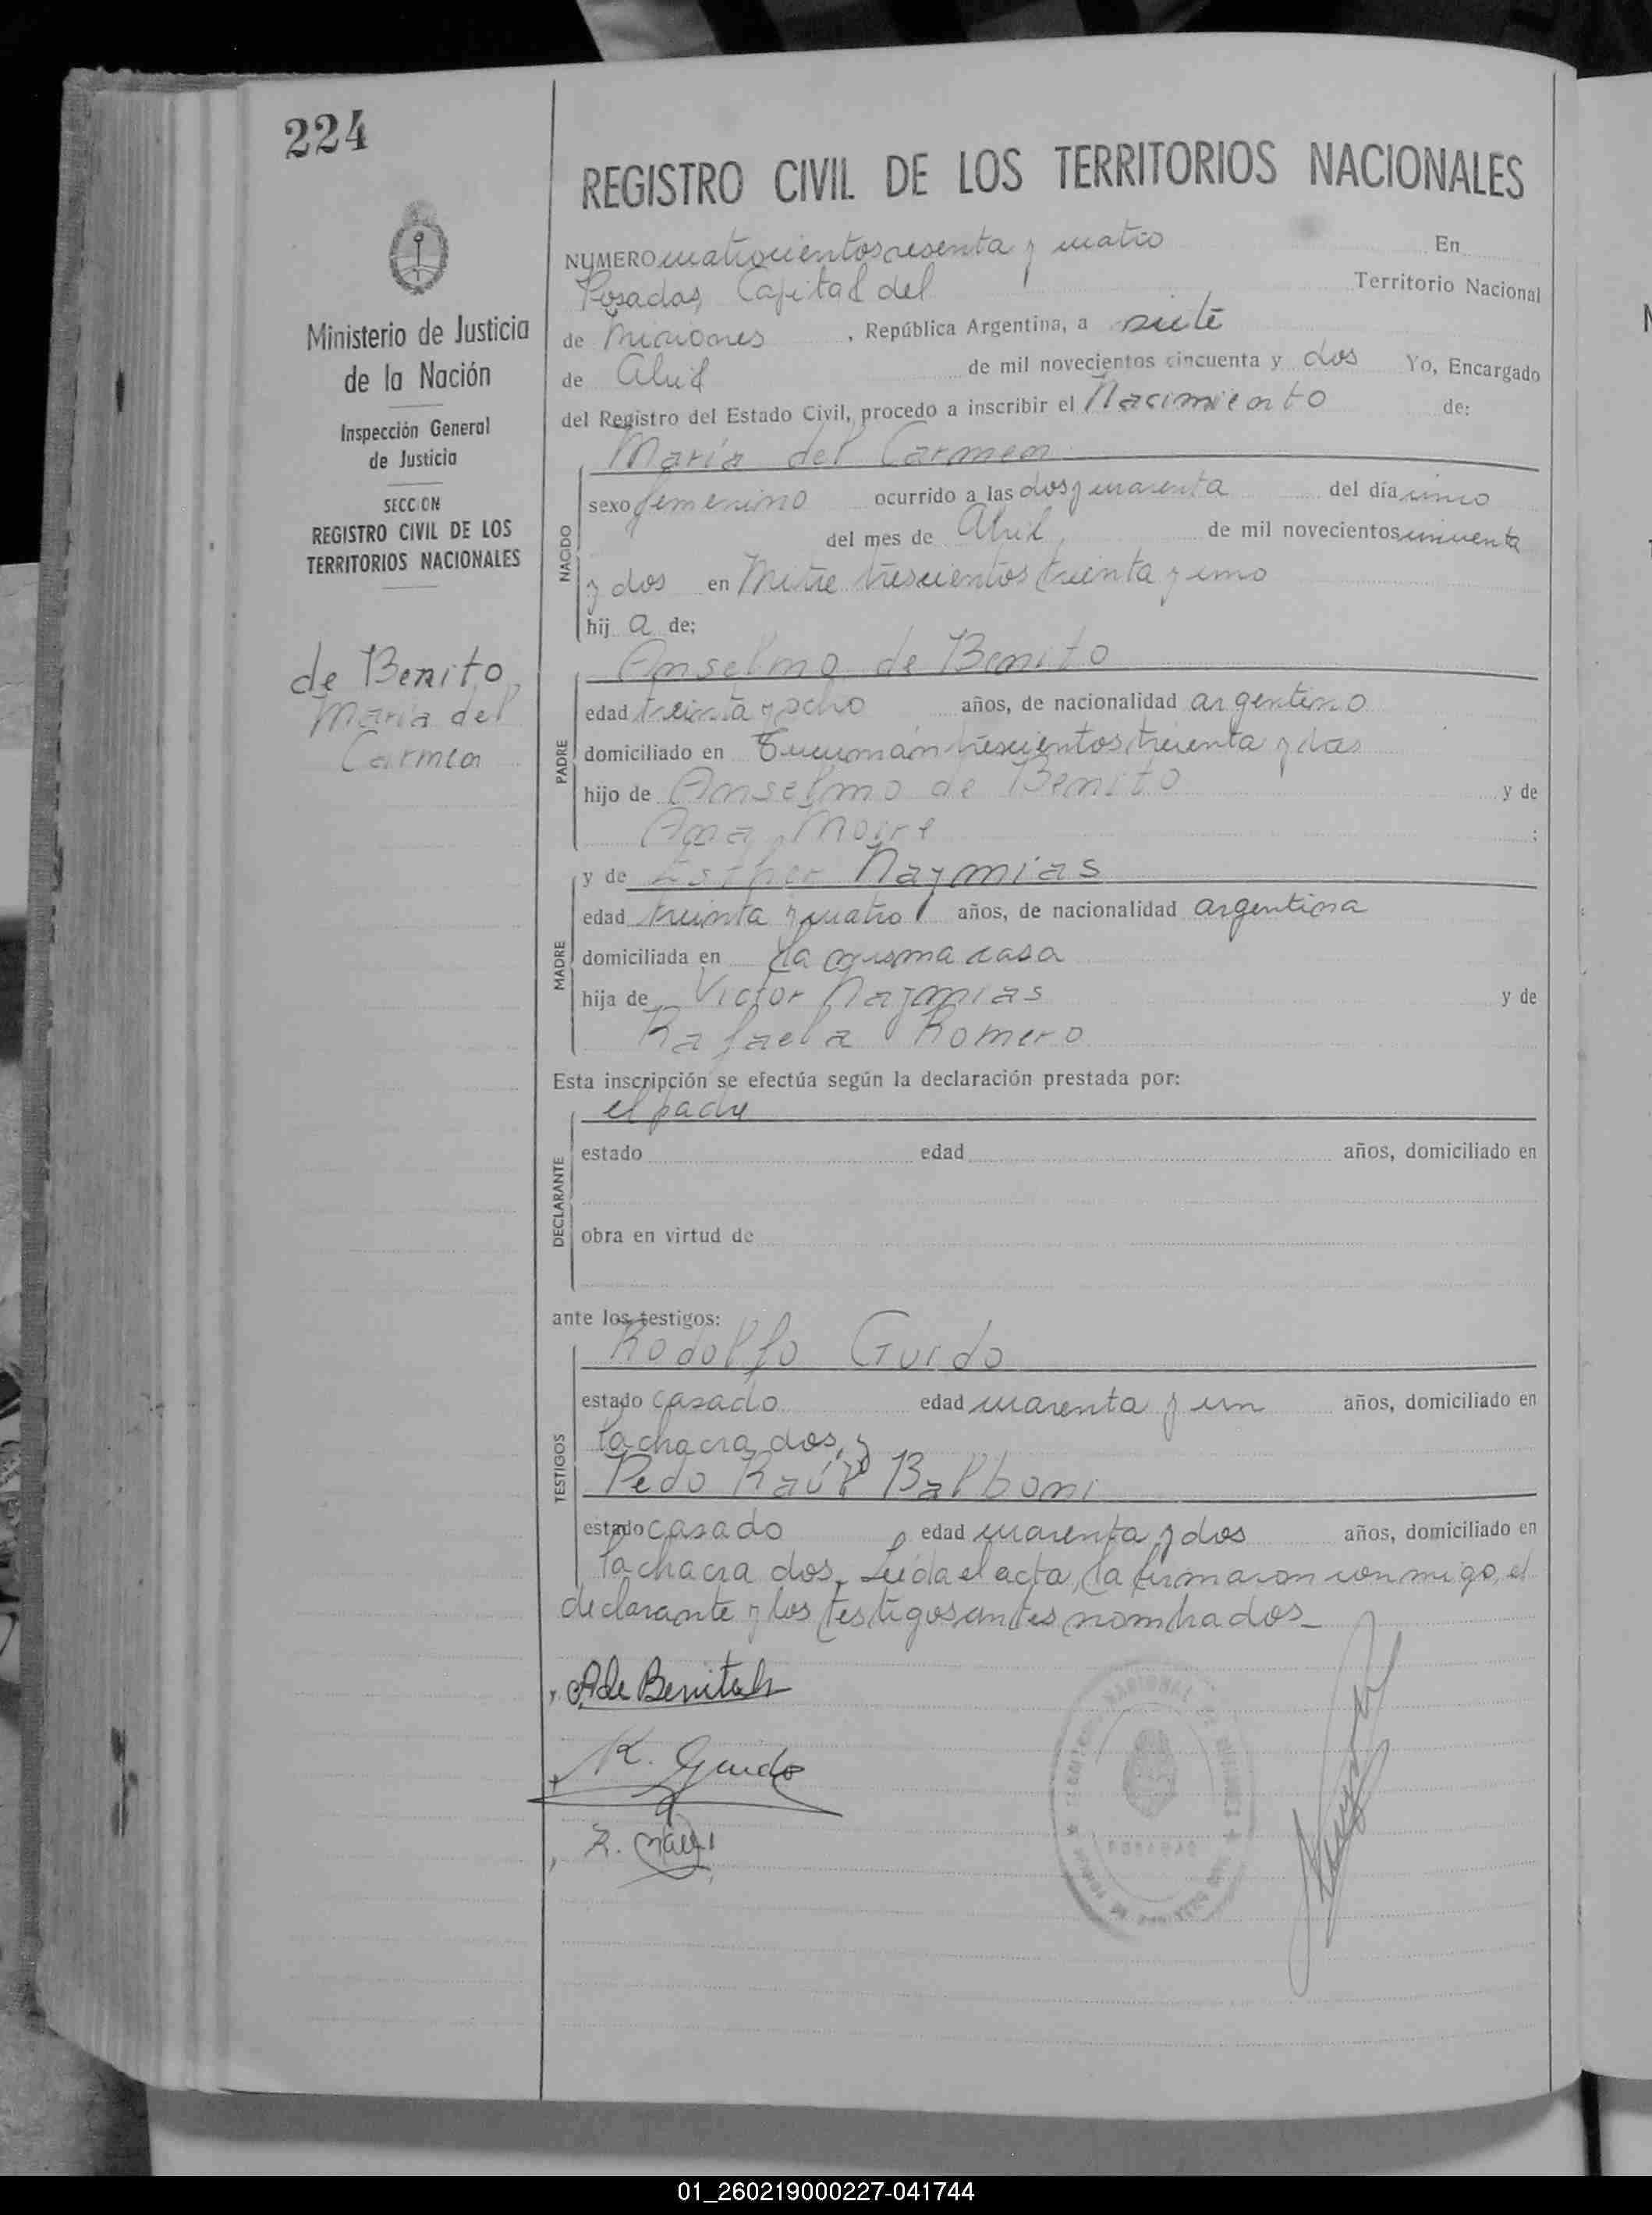 224
REGISTRO CIVIL DE LOS TERRITORIOS NACIONALES
NUMERO cuatrocientos sesenta y cuatro En
Posadas, Capital del Territorio Nacional
de Misiones, República Argentina, a siete
de Abril de mil novecientos cincuenta y dos Yo, Encargado
del Registro del Estado Civil, procedo a inscribir el Nacimiento de:
María del Carmen
Ministerio de Justicia
de la Nación
Inspección General
de Justicia
SECCION
REGISTRO CIVIL DE LOS
TERRITORIOS NACIONALES
de Benito,
María del
Carmen
NACIDO
sexo femenino ocurrido a las dos y cuarenta del día cinco
del mes de Abril de mil novecientos cincuenta
y dos en Mitre trescientos treinta y uno
hij a de:
Anselmo de Benito
PADRE
edad treinta y ocho años, de nacionalidad argentino
domiciliado en Tucumán trescientos treinta y dos
hijo de Anselmo de Benito y de
Ana :
y de Esther Naymias
MADRE
edad treinta y cuatro años, de nacionalidad argentina
domiciliada en la misma casa
hija de Victor Naymias y de
Rafaela Romero
Esta inscripción se efectúa según la declaración prestada por:
el padre
DECLARANTE
estado edad años, domiciliado en
obra en virtud de
ante los testigos:
Rodolfo Guido
TESTIGOS
estado casado edad cuarenta y un años, domiciliado en
la chacra dos, y
Pedo Raúl Balboni
estado casado edad cuarenta y dos años, domiciliado en
la chacra dos. Leída el acta, la firmaron conmigo, el
declarante y los testigos antes nombrados_
A de Benito
R. Guido
01_260219000227-041744